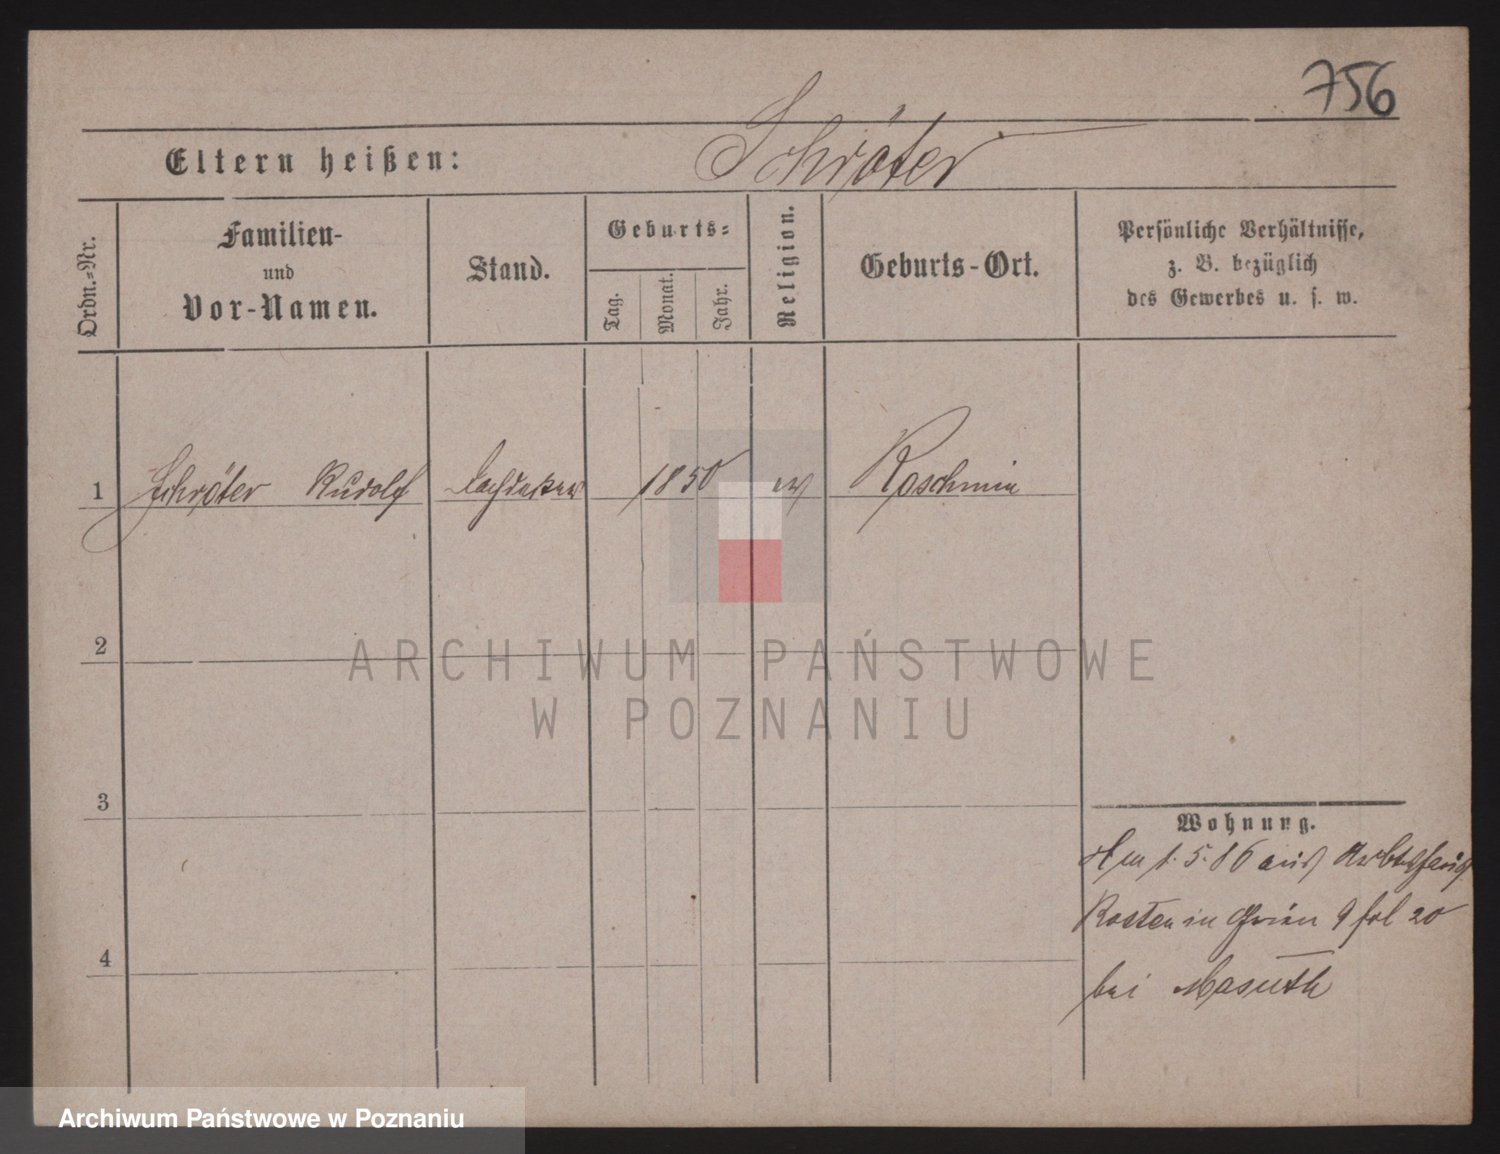 756
Eltern heißen: Schröter
Ordn.-Nr.
Familien-
und
Vor-Namen.
Stand.
Geburts-
Tag.
Monat.
Jahr.
Religion.
Geburts-Ort.
Persönliche Verhältnisse,
z. B. bezüglich
des Gewerbes u. s. w.
1 Schröter Rudolf Dachdeker 1850 ev Koschmin
2
ARCHIWUM PAŃSTWOWE
W POZNANIU
3
4
Wohnung.
1. 5. 86 aus Arbtshaus
Kosten in 9 fol 20
bei Masuth
Archiwum Państwowe w Poznaniu